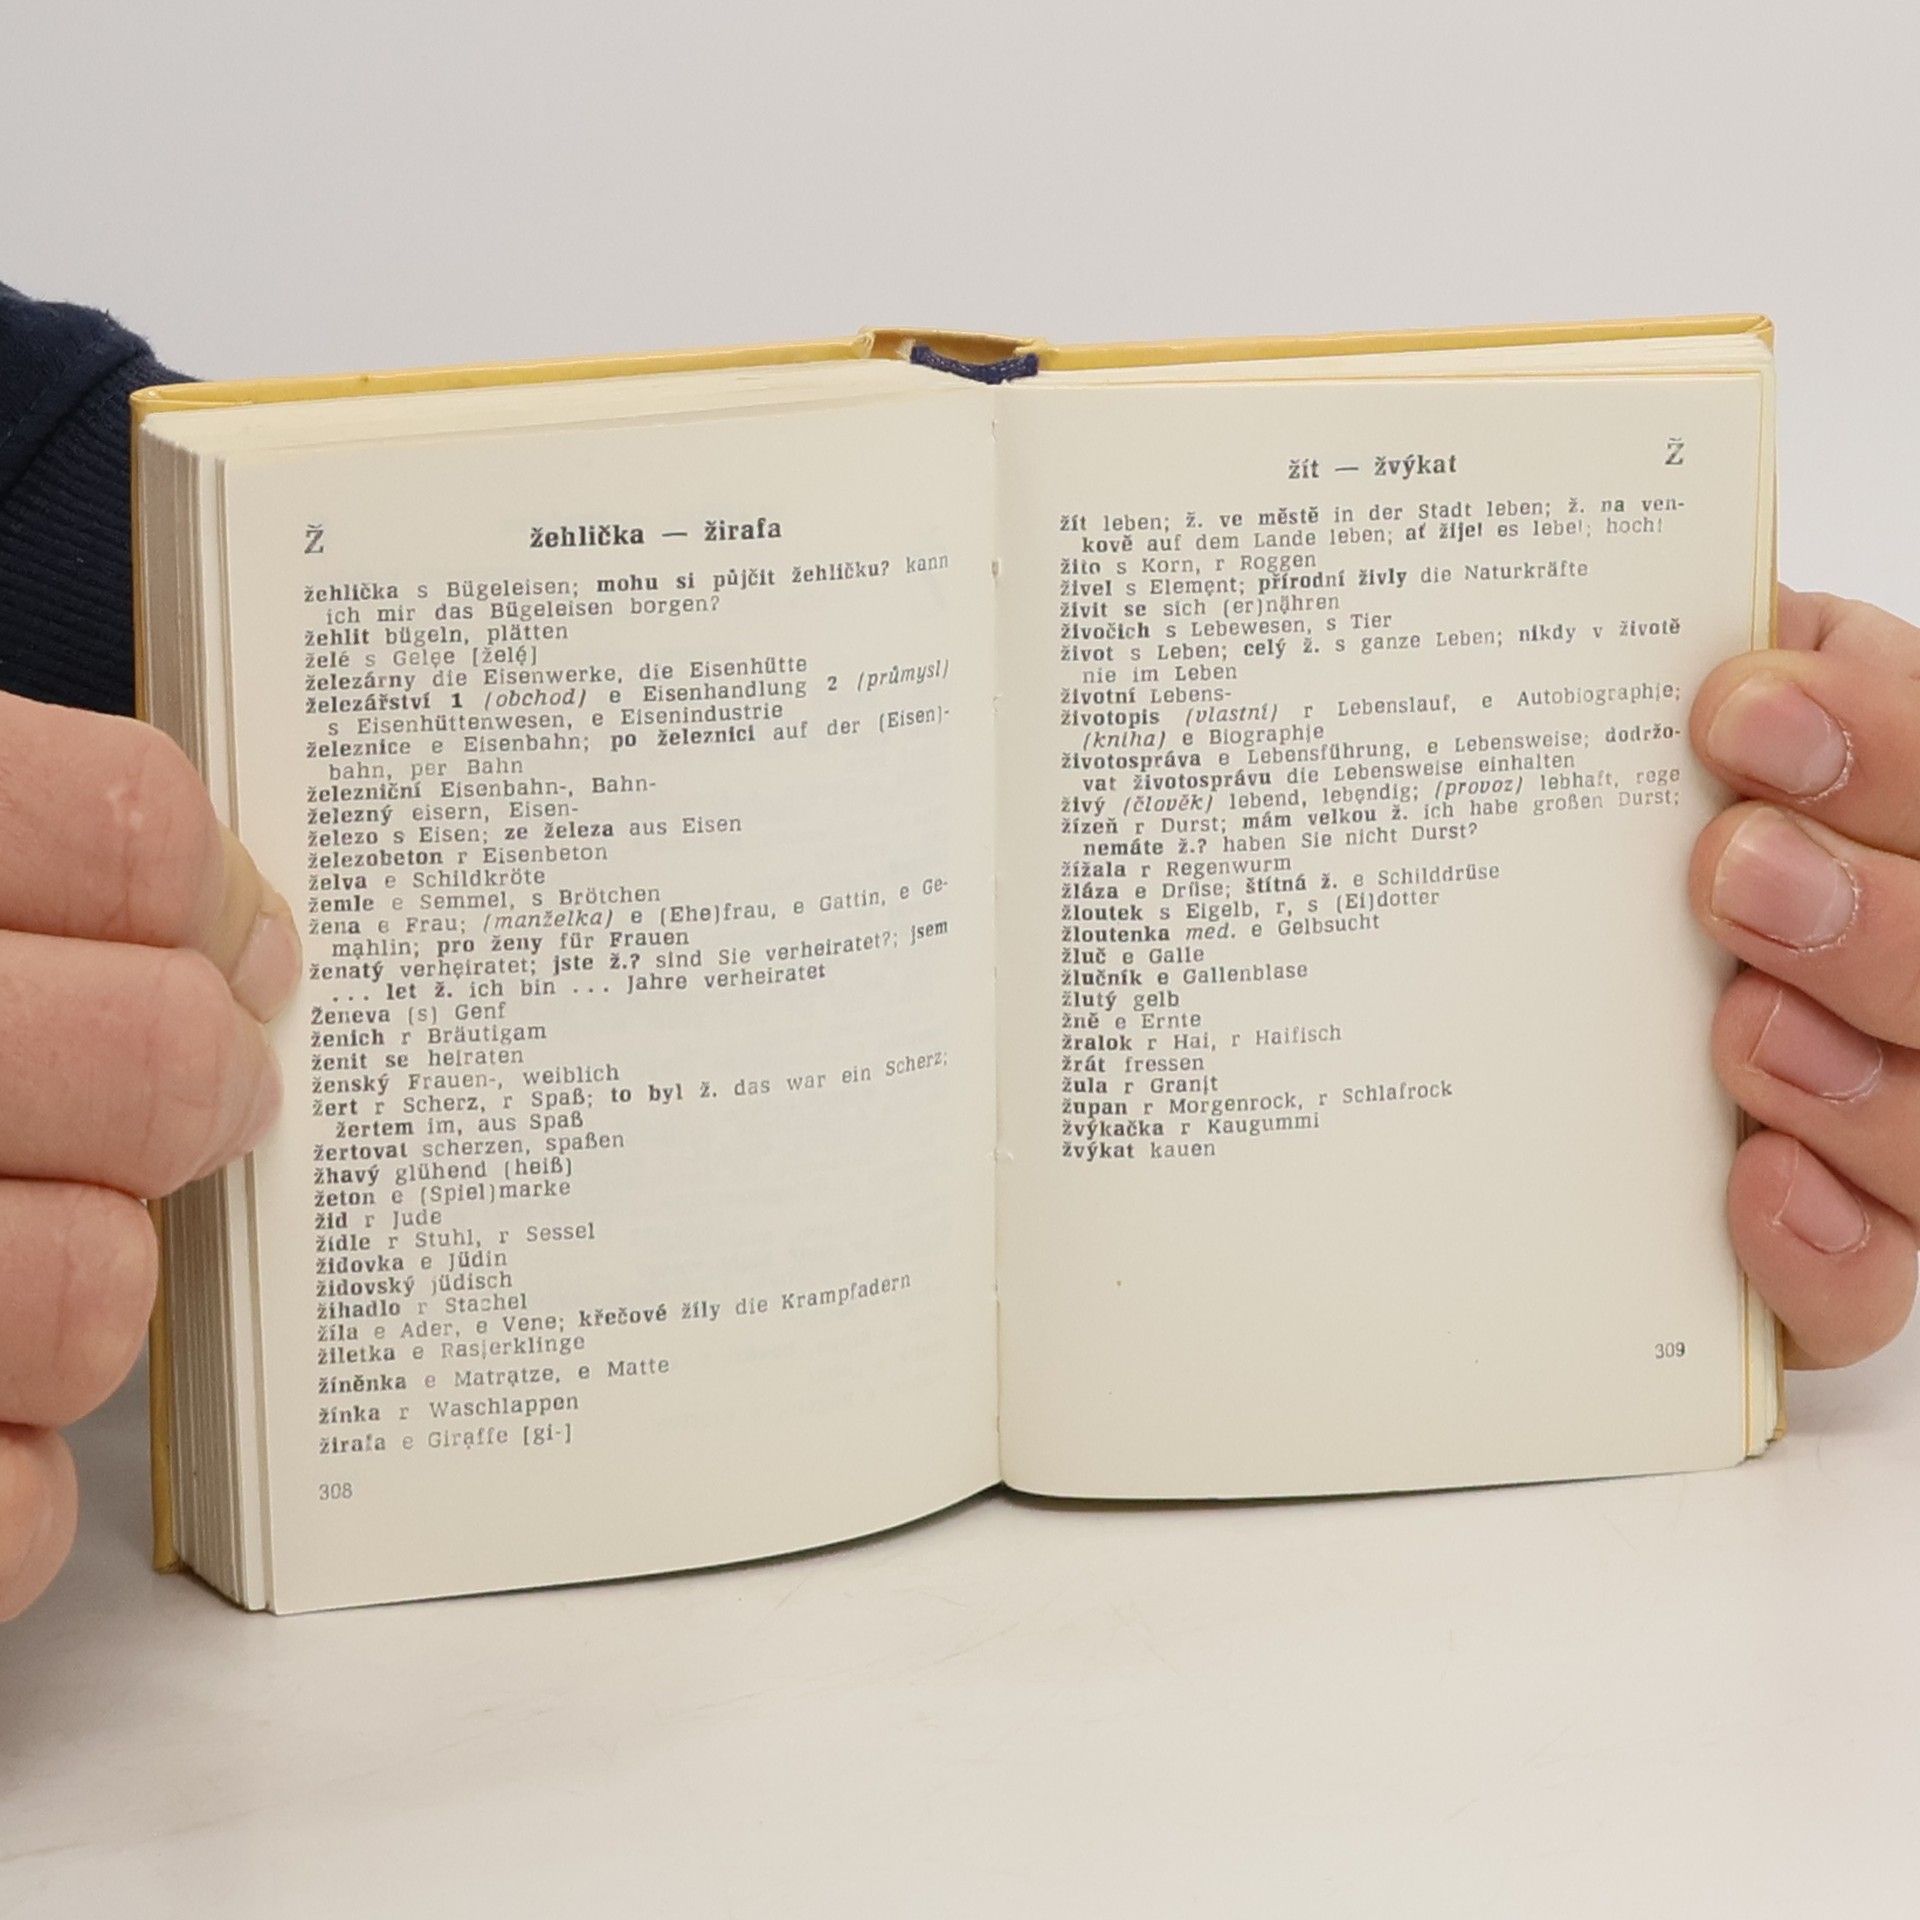 Ž žehlička — žirafa
žehlička s Bügeleisen; mohu si půjčit žehličku? kann
ich mir das Bügeleisen borgen?
žehlit bügeln, plätten
želé s Gelẹe [želẹ́]
železárny die Eisenwerke, die Eisenhütte
železářství 1 (obchod) e Eisenhandlung 2 (průmysl)
s Eisenhüttenwesen, e Eisenindustrie
železnice e Eisenbahn; po železnici auf der (Eisen)-
bahn, per Bahn
železniční Eisenbahn-, Bahn-
železný eisern, Eisen-
železo s Eisen; ze železa aus Eisen
železobeton r Eisenbeton
želva e Schildkröte
žemle e Semmel, s Brötchen
žena e Frau; (manželka) e (Ehe)frau, e Gattin, e Ge-
mạhlin; pro ženy für Frauen
ženatý verhẹiratet; jste ž.? sind Sie verheiratet?; jsem
... let ž. ich bin ... Jahre verheiratet
Ženeva (s) Genf
ženich r Bräutigam
ženit se heiraten
ženský Frauen-, weiblich
žert r Scherz, r Spaß; to byl ž. das war ein Scherz;
žertem im, aus Spaß
žertovat scherzen, spaßen
žhavý glühend (heiß)
žeton e (Spiel)marke
žid r Jude
židle r Stuhl, r Sessel
židovka e Jüdin
židovský jüdisch
žihadlo r Stachel
žíla e Ader, e Vene; křečové žíly die Krampfadern
žiletka e Rasịerklinge
žíněnka e Matrạtze, e Matte
žínka r Waschlappen
žirafa e Girạffe [gi-]
308
žít — žvýkat Ž
žít leben; ž. ve městě in der Stadt leben; ž. na ven-
kově auf dem Lande leben; ať žije! es lebe!; hoch!
žito s Korn, r Roggen
živel s Elemẹnt; přírodní živly die Naturkräfte
živit se sich (er)nähren
živočich s Lebewesen, s Tier
život s Leben; celý ž. s ganze Leben; nikdy v životě
nie im Leben
životní Lebens-
životopis (vlastní) r Lebenslauf, e Autobiographịe;
(kniha) e Biographịe
životospráva e Lebensführung, e Lebensweise; dodržo-
vat životosprávu die Lebensweise einhalten
živý (člověk) lebend, lebẹndig; (provoz) lebhaft, rege
žízeň r Durst; mám velkou ž. ich habe großen Durst;
nemáte ž.? haben Sie nicht Durst?
žížala r Regenwurm
žláza e Drüse; štítná ž. e Schilddrüse
žloutek s Eigelb, r, s (Ei)dotter
žloutenka med. e Gelbsucht
žluč e Galle
žlučník e Gallenblase
žlutý gelb
žně e Ernte
žralok r Hai, r Haifisch
žrát fressen
žula r Granịt
župan r Morgenrock, r Schlafrock
žvýkačka r Kaugummi
žvýkat kauen
309